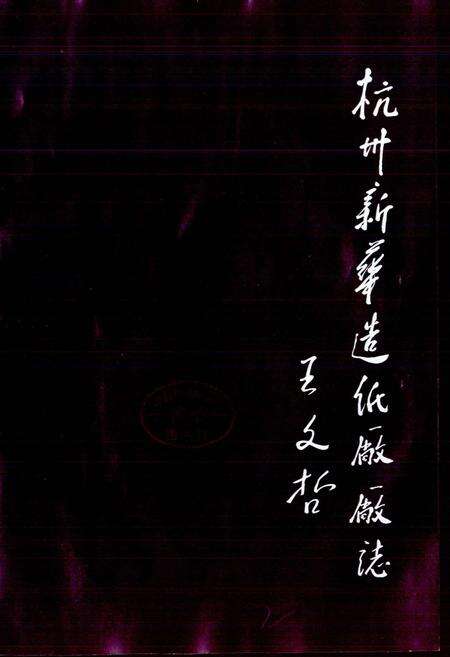 杭州新華造纸廠廠誌
王文哲